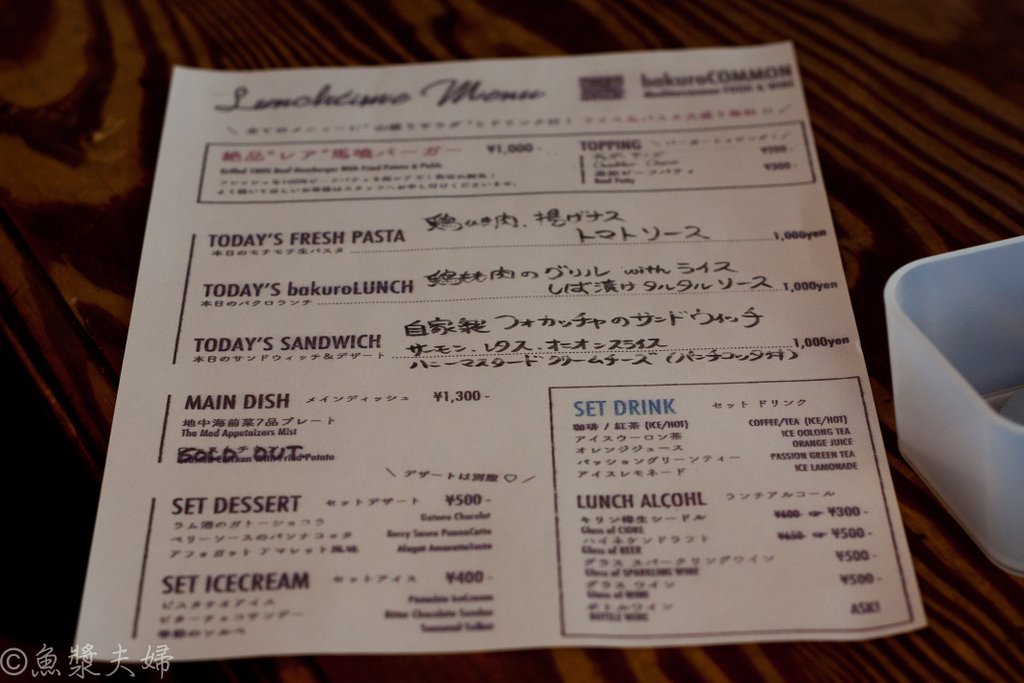 Lunchtime Menu
bakuroCOMMON
Mediterranean FOOD & WINE
絶品"レア"馬喰バーガー ¥1,000-
Grilled 100% Beef Hamburger With Fried Potato & Pickls
TOPPING
Cheddar Cheese
追加ビーフパティ ¥500-
Beef Patty
TODAY'S FRESH PASTA 鶏ひき肉、揚げナス
本日のモチモチ生パスタ トマトソース 1,000yen
TODAY'S bakuroLUNCH 鶏もも肉のグリル with ライス
本日のバクロランチ しば漬けタルタルソース 1,000yen
TODAY'S SANDWICH 自家製フォカッチャのサンドウィッチ
本日のサンドウィッチ&デザート サーモン、レタス、オニオンスライス 1,000yen
ハニーマスタードクリームチーズ (パンナコッタ付)
MAIN DISH メインディッシュ ¥1,300-
地中海前菜7品プレート
The Med Appetaizers Mist
SOLD OUT
\ デザートは別腹♡ /
SET DESSERT セットデザート ¥500-
ラム酒のガトーショコラ Gateau Chocolat
ベリーソースのパンナコッタ Berry Sauce PannaCotta
アフォガット アマレット風味
SET ICECREAM セットアイス ¥400-
ピスタチオアイス Pistachio IceCream
ビターチョコサンデー Bitter Chocolate Sundae
季節のソルベ Seasonal Solbet
SET DRINK セットドリンク
珈琲 / 紅茶 (ICE/HOT) COFFEE/TEA (ICE/HOT)
アイスウーロン茶 ICE OOLONG TEA
オレンジジュース ORANGE JUICE
パッショングリーンティー PASSION GREEN TEA
アイスレモネード ICE LAMONADE
LUNCH ALCOHL ランチアルコール
キリン樽生シードル ¥600- ☞ ¥300-
Glass of CIDRE
ハイネケンドラフト ¥650- ☞ ¥500-
Glass of BEER
グラス スパークリングワイン ¥500-
Glass of SPARKLING WINE
グラス ワイン ¥500-
Glass of WINE
ボトルワイン ASK!
BOTTLE WINE
©魚漿夫婦